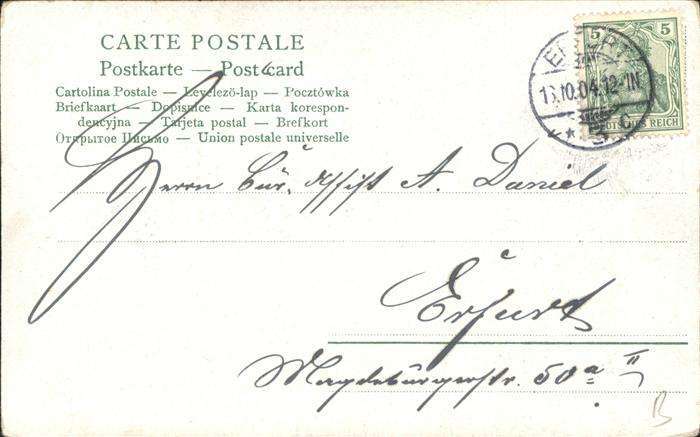 CARTE POSTALE
Postkarte — Postcard
Cartolina Postale — Levelezö-lap — Pocztówka
Briefkaart — Dopisnice — Karta korespon-
dencyjna — Tarjeta postal — Brefkort
Открытое Письмо — Union postale universelle
5 5
ERFURT
13.10.04.12-1N.
* 3 c
DEUTSCHES REICH
Herrn Bür. Assist A. Daniel
Erfurt
Magdebürgerstr. 50a II
B